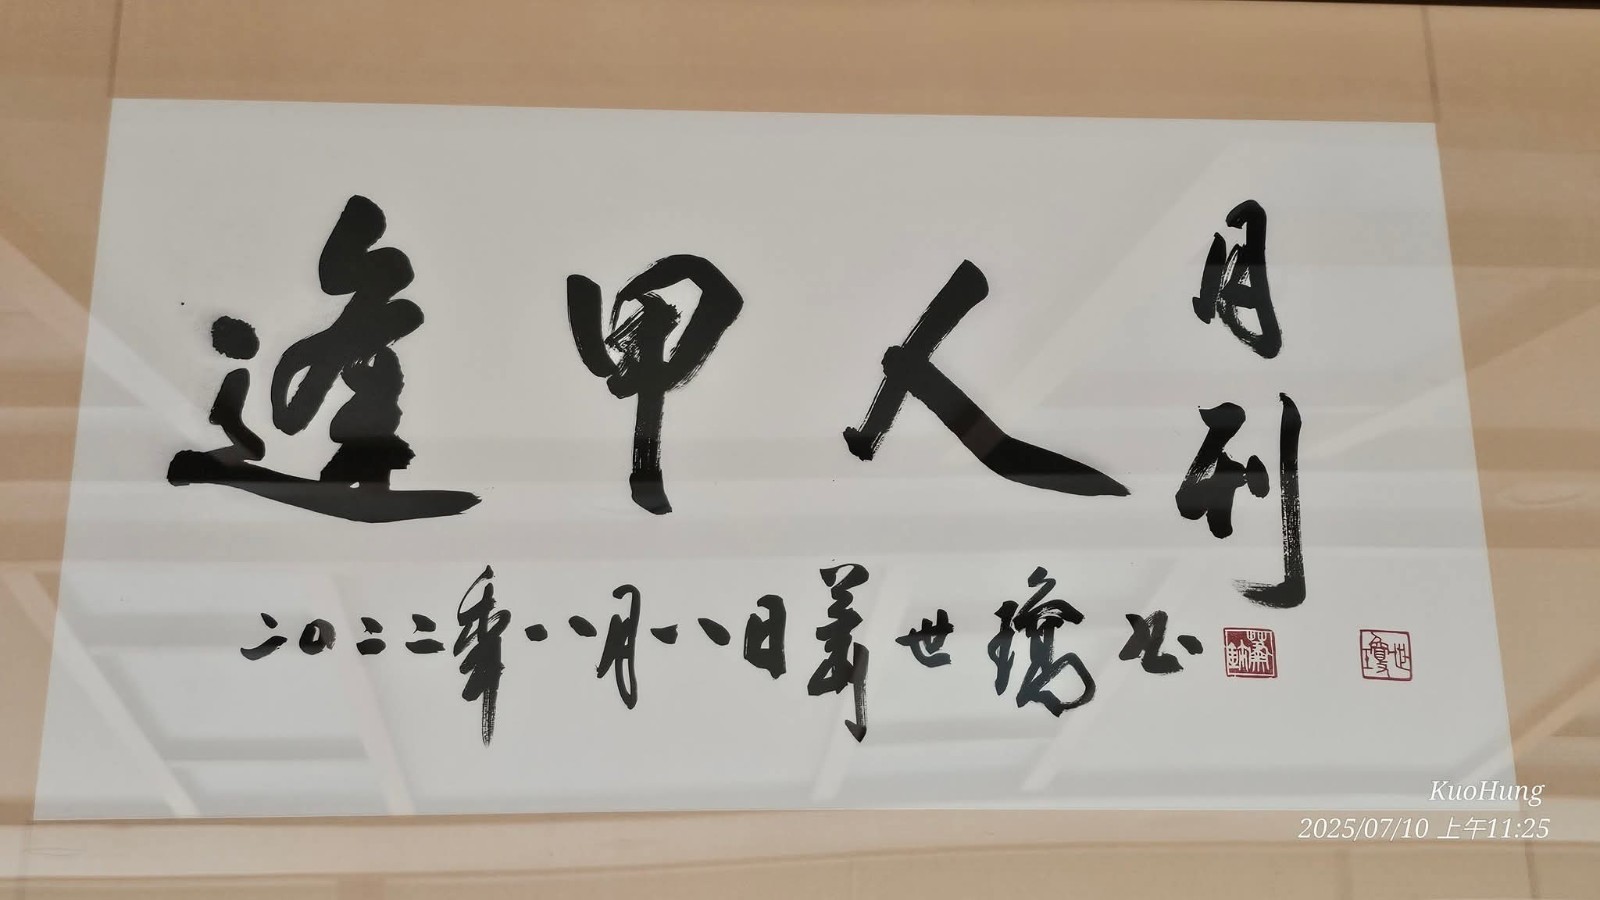 逢甲人
月刊
二〇二二年八月八日蕭世瓊書
世瓊
KuoHung
2025/07/10 上午11:25